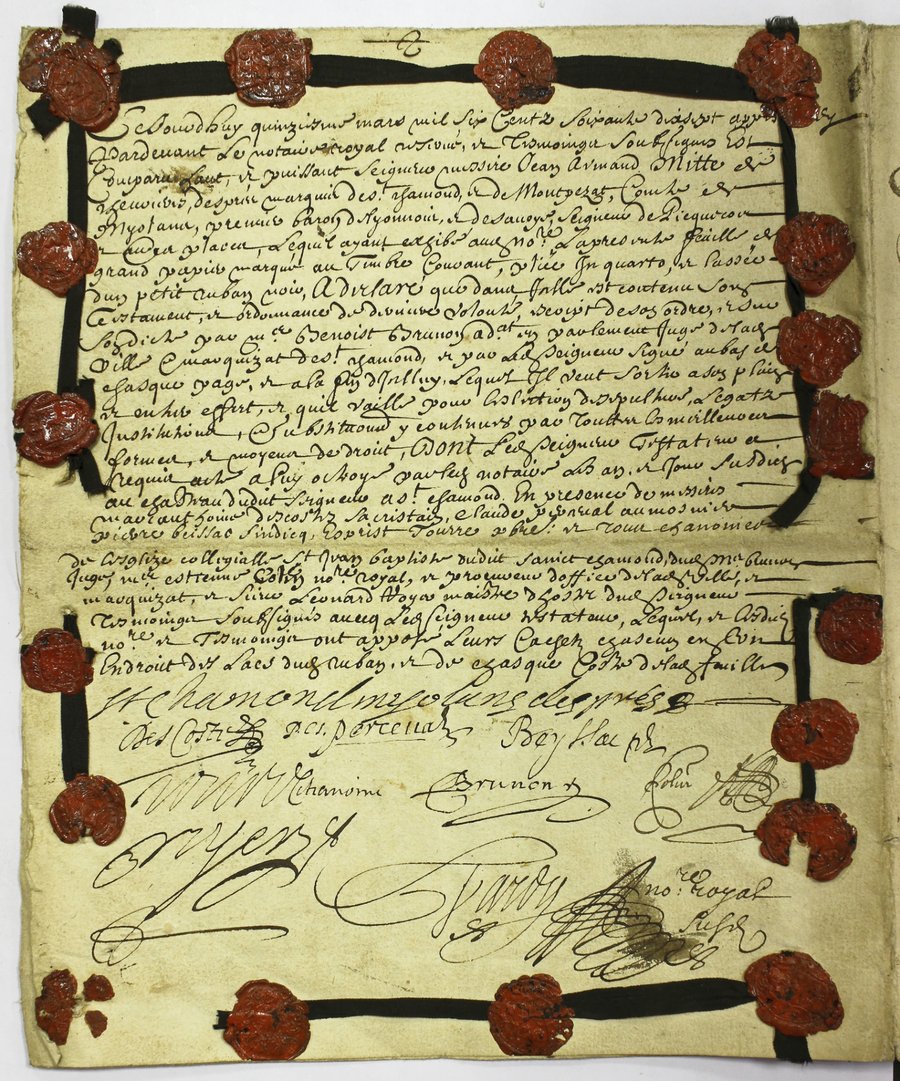 Ce Jourdhuy quinziesme mars mil six Centz soixante dixsept apres midy
Pardevant Le notaire royal reservé, et Tesmoings Soubsignés Est
Comparu haut, et puissant Seigneur messire Jean Armand Mitte de
chevrieres, després marquis de St. chamond, et de Montpezat, Comte de
Myolans, premier baron de lyonnois, et de savoye, Seigneur de
et autres places, Lequel ayant exhibé audt nore. La presente feuille de
grand papier marqué au Timbre Courant, pliée In quarto, et lassée
dun petit ruban noir, A declaré que dans Jcelle est contenu Son
Testament, et ordonnance de derniere volonté, escript de son ordre, et sur
Son dicté par mre Benoist Brunon adat. en parlement Juge de lad
Ville & marquizat de st. chamond, et par Led Seigneur signé au bas de
chasque page, et a la fin d'Jcelluy, Lequel Jl veut Sortir a son plain
et entier effect, et quil vaille pour Eslection de sepulture, Legatz
Jnstitutions, & substitutions y contenues par Touttes les meilleures
formes, et moyens de droit, Dont Led Seigneur Testateur a
requis acte a Luy octroyé par led notaire Les an, et Jour susdicts
au chasteau dudit Seigneur a st. chamond. En presence de messires
marcanthoine descostes sacristain, claude perceval aumosnier
pierre beissac Sindicq, Tourre pbre. et chanoines
de Lesglize collegialle St Jean baptiste dudit sainct chamond, dud Mre brunon
Juge, mre estienne Colin nore. royal, et procureur d'office de lad Ville, et
marquizat, et sieur Leonard Noyer maistre dhostel dud Seigneur
Tesmoings Soubsignés avecq Led Seigneur testateur, Lequel, et Lesdicts
nore. et Tesmoings ont apposé Leurs Cachetz chascun en Son
Endroit des Lacs dud Ruban, et de chasque Costé de lad feuille
St Chamond myolans després
Des Costes Perceval Beyssac
Brunon Colin
Pardy nore. royal